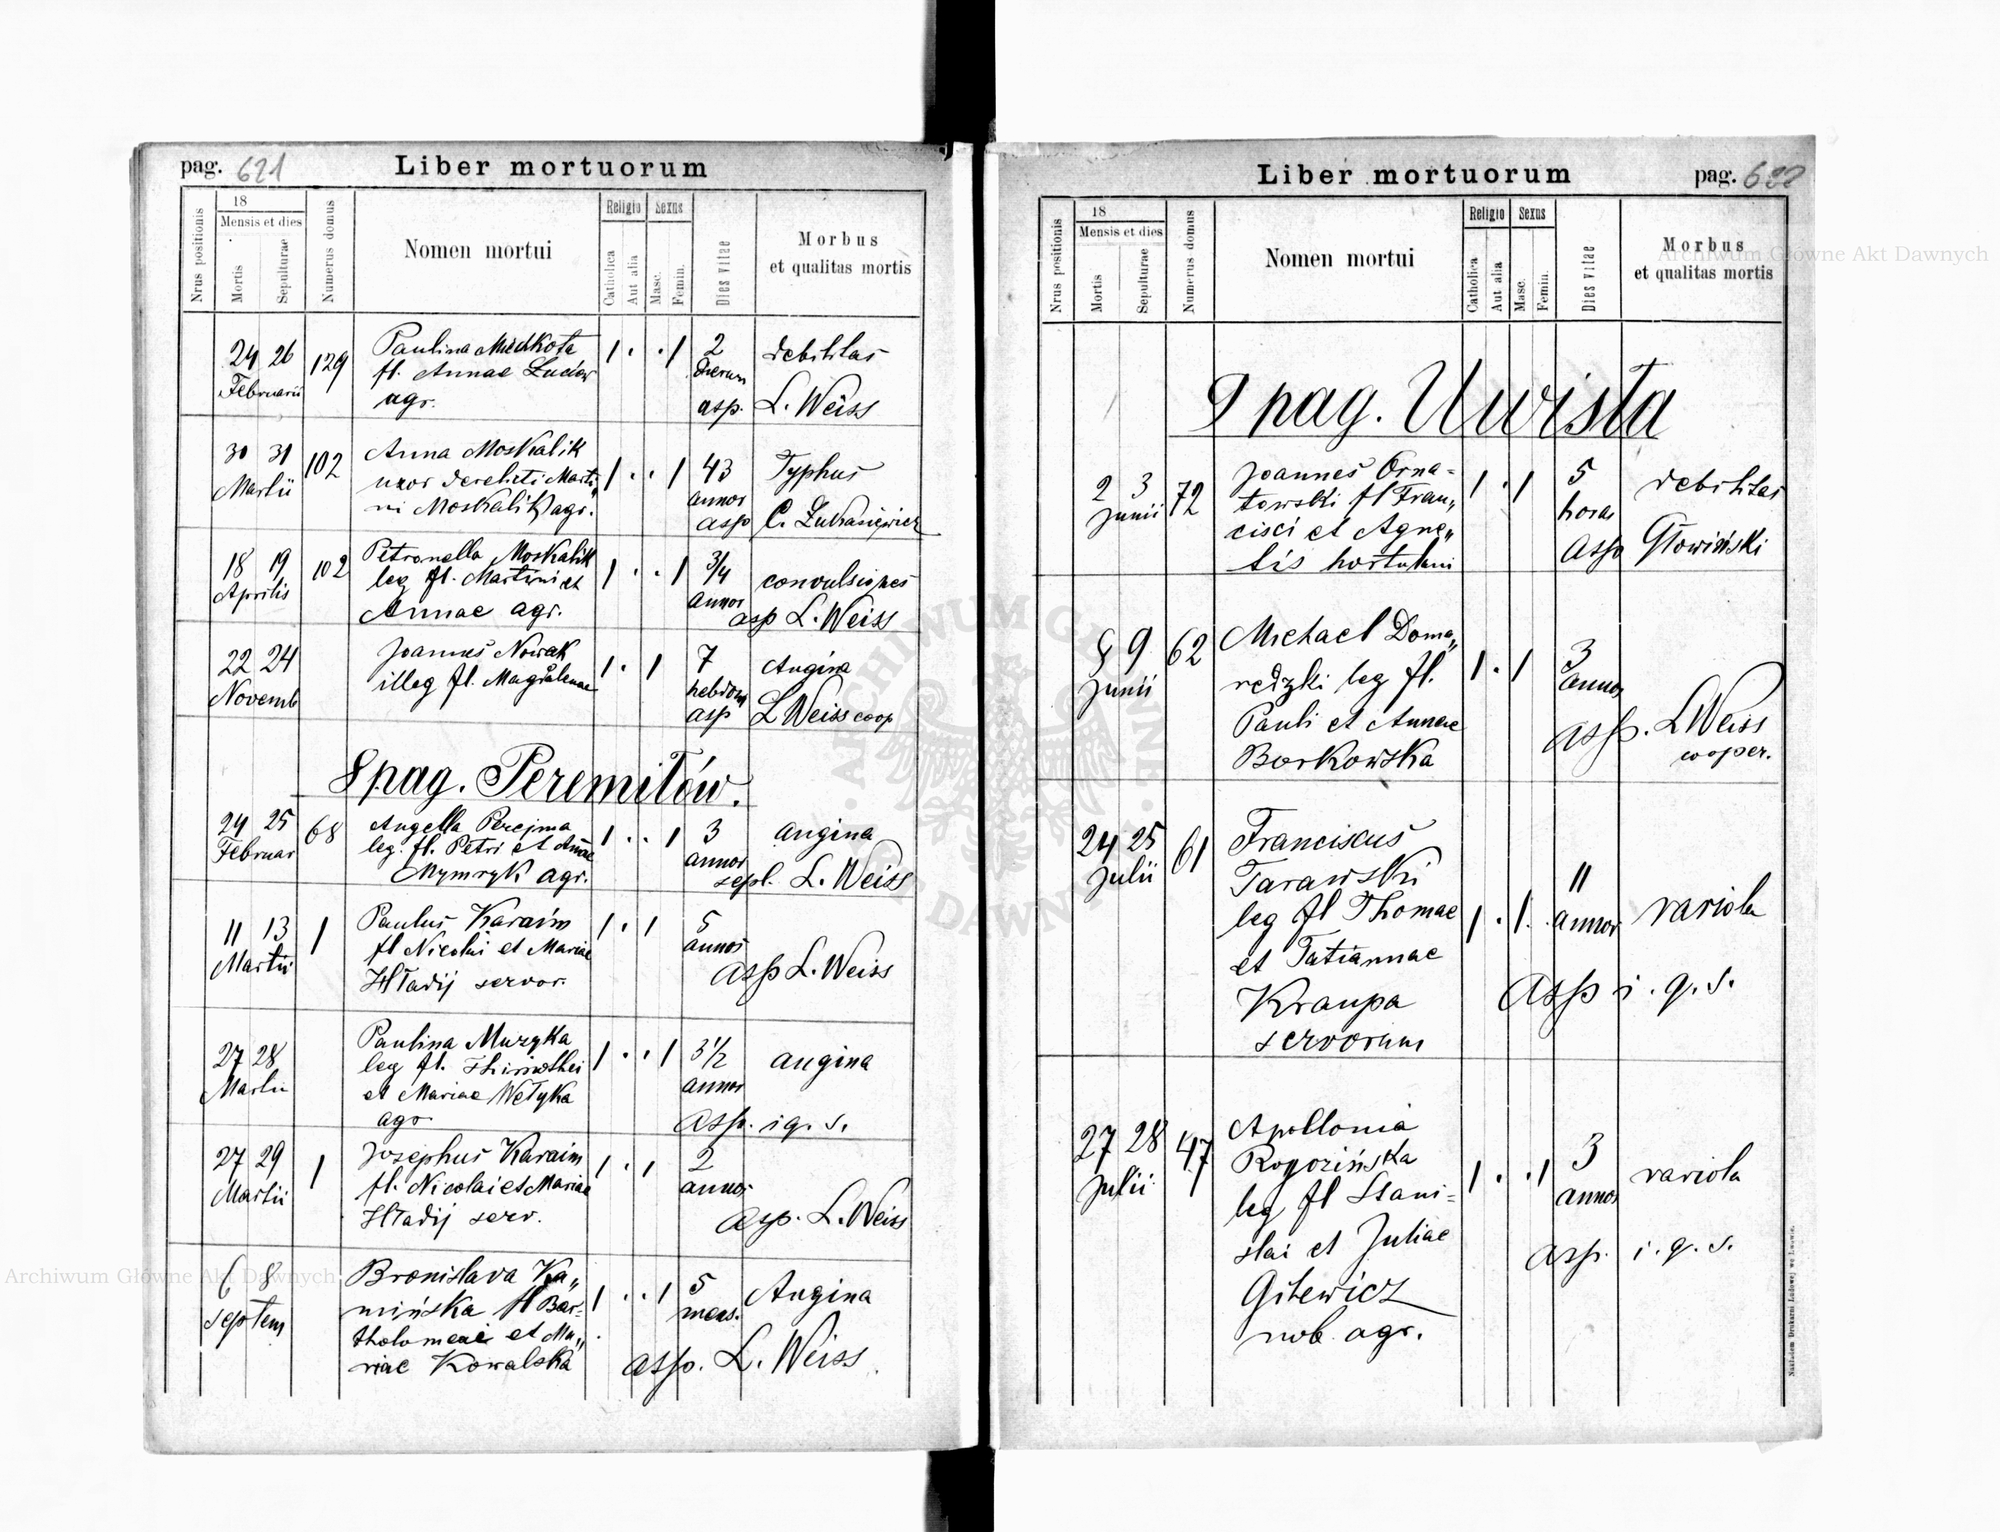 pag. 621
Liber mortuorum
Nrus positionis
18
Mensis et dies
Mortis
Sepulturae
Numerus domus
Nomen mortui
Religio
Catholica
Aut alia
Sexus
Masc.
Femin.
Dies vitae
Morbus
et qualitas mortis
24 26
Februarii
129
Paulina
fl. Annae
agr.
1 . . 1
2
asp.
debilitas
L. Weiss
30 31
Martii
102
Anna Moskalik
uxor derelicti Marti„
ni Moskalik agr.
1 . . 1
43
annor
asp
Typhus
C. Łukasiewicz
18 19
Aprilis
102
Petronella Moskalik
leg fl. Martini et
Annae agr.
1 . . 1
3/4
annor
asp
convulsiones
L. Weiss
22 24
Novemb
Joannes Nowak
illeg fl. Magdalenae
1 . 1
7
hebdom
asp
Angina
L Weiss coop
8 pag. Peremiłów.
24 25
Februar
68
Angella Perejma
leg. fl. Petri et Annae
Mymryk agr.
1 . . 1
3
annor
sepl.
angina
L. Weiss
11 13
Martii
1
Paulus Karaim
fl Nicolai et Mariae
Hładij servor.
1 . 1
5
annos
asp L. Weiss
27 28
Martii
Paulina Muzyka
leg fl. Thimothei
et Mariae Wełyka
agr.
1 . . 1
3 1/2
annor
asp. i q. s.
angina
27 29
Martii
1
Josephus Karaim
fl. Nicolai et Mariae
Hładij serv.
1 . 1
2
annos
asp. L. Weiss
6 8
Septem
Bronislava Ka„
mińska fl Bar-
tholomeai et Ma„
riae Kowalska
1 . . 1
5
mens.
Angina
asp. L. Weiss
Liber mortuorum
pag. 622
Nrus positionis
18
Mensis et dies
Mortis
Sepulturae
Numerus domus
Nomen mortui
Religio
Catholica
Aut alia
Sexus
Masc.
Femin.
Dies vitae
Morbus
et qualitas mortis
9 pag. Uwisła
2 3
Junii
72
Joannes Orna-
towski fl Fran„
cisci et Agne„
tis hortulani
1 . 1
5
horas
asp
debilitas
Głowiński
8 9
Junii
62
Michael Doma„
redzki leg fl.
Pauli et Annae
Borkowska
1 . 1
3
annos
asp. L Weiss
cooper.
24 25
Julii
61
Franciscus
Tarawski
leg fl Thomae
et Tatiannae
Kraupa
servorum
1 . 1.
11
annor
variola
asp i. q. s.
27 28
Julii
47
Apollonia
Rogozińska
leg fl Stani-
slai et Juliae
Gitewicz
nob. agr.
1 . . 1
3
annos
variola
asp. i. q. s.
Nakładem Drukarni Ludowej we Lwowie.
Archiwum Główne Akt Dawnych
Archiwum Główne Akt Dawnych
ARCHIWUM GŁÓWNE AKT DAWNYCH